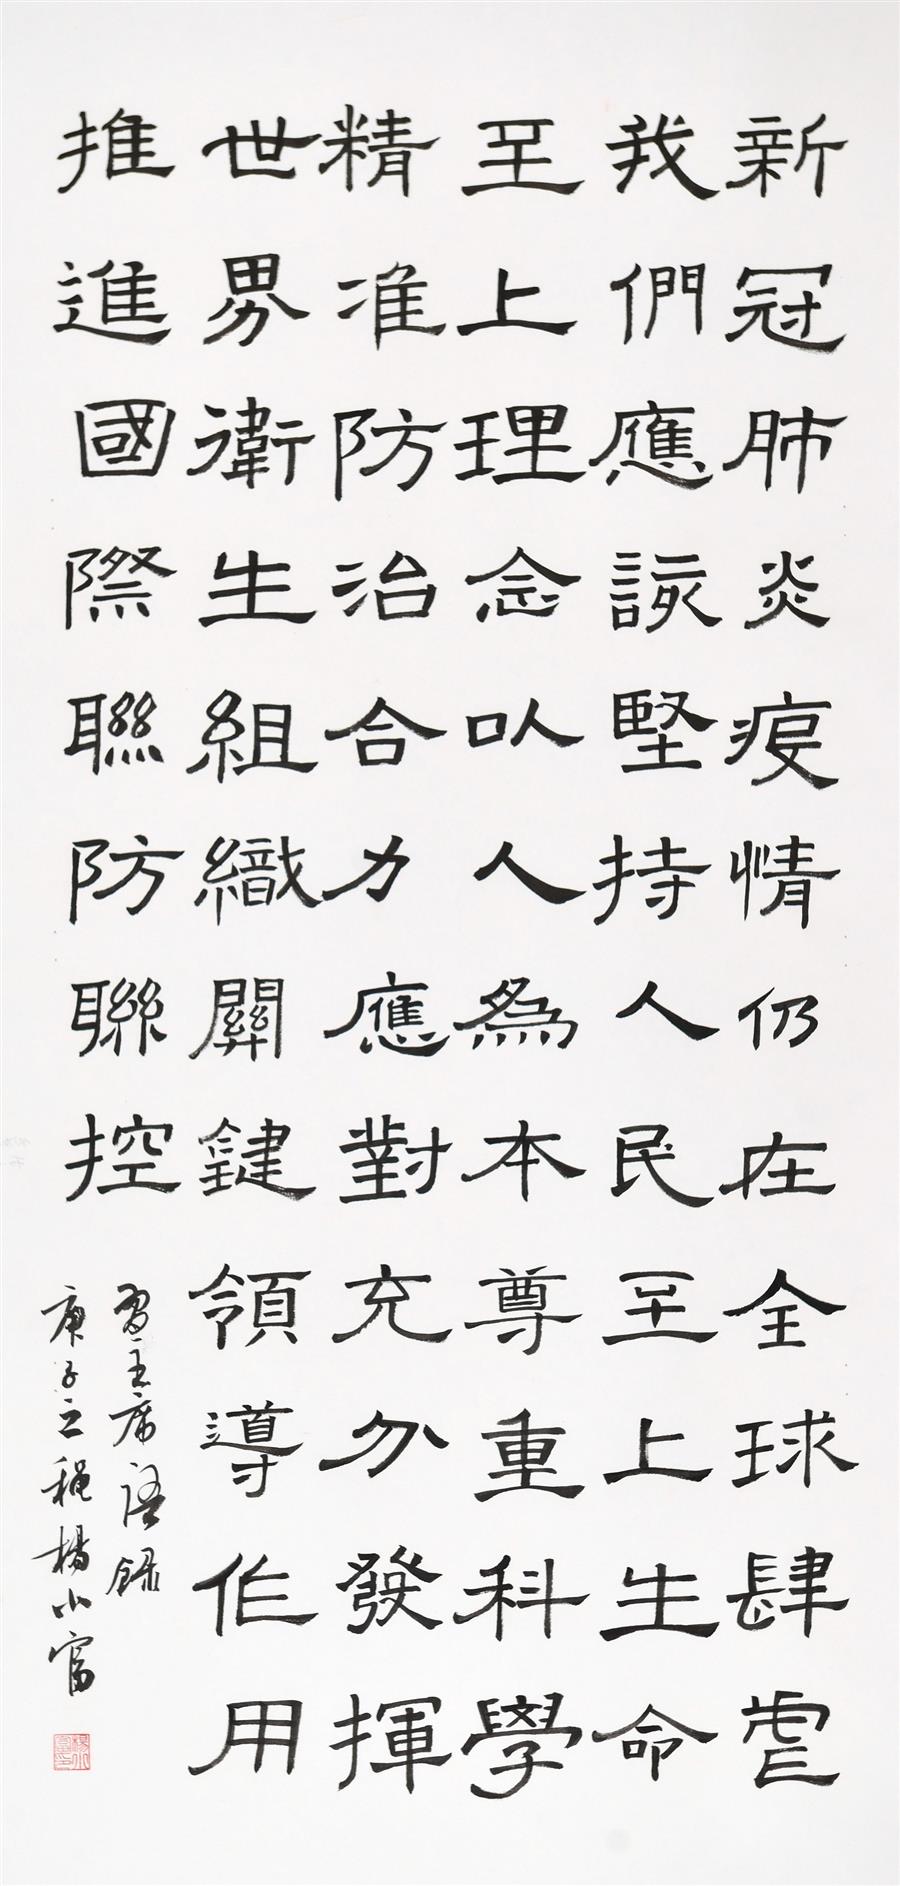 新冠肺炎疫情仍在全球肆虐
我們應該堅持人民至上生命
至上理念以人為本尊重科學
精准防治合力應對充分發揮
世界衛生組織關鍵領導作用
推進國際聯防聯控
習主席語錄
庚子之秋楊小富